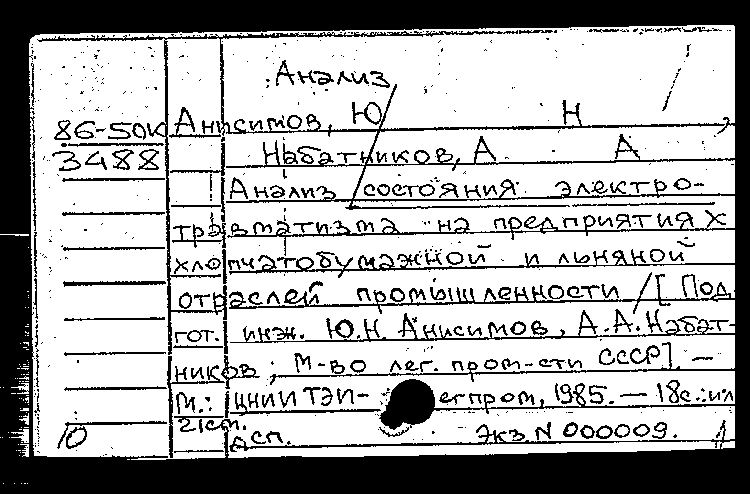 Анализ
86-50К Анисимов, Ю Н ,
3488 Набатников, А А
Анализ состояния электро-
травматизма на предприятиях
хлопчатобумажной и льняной
отраслей промышленности / [Под
гот. инж. Ю.Н. Анисимов, А.А. Набат-
ников ; М-во лег. пром-сти СССР]. —
М.: ЦНИИТЭИ- егпром, 1985. — 18с.: ил
21см.
10 Экз. N 000009.